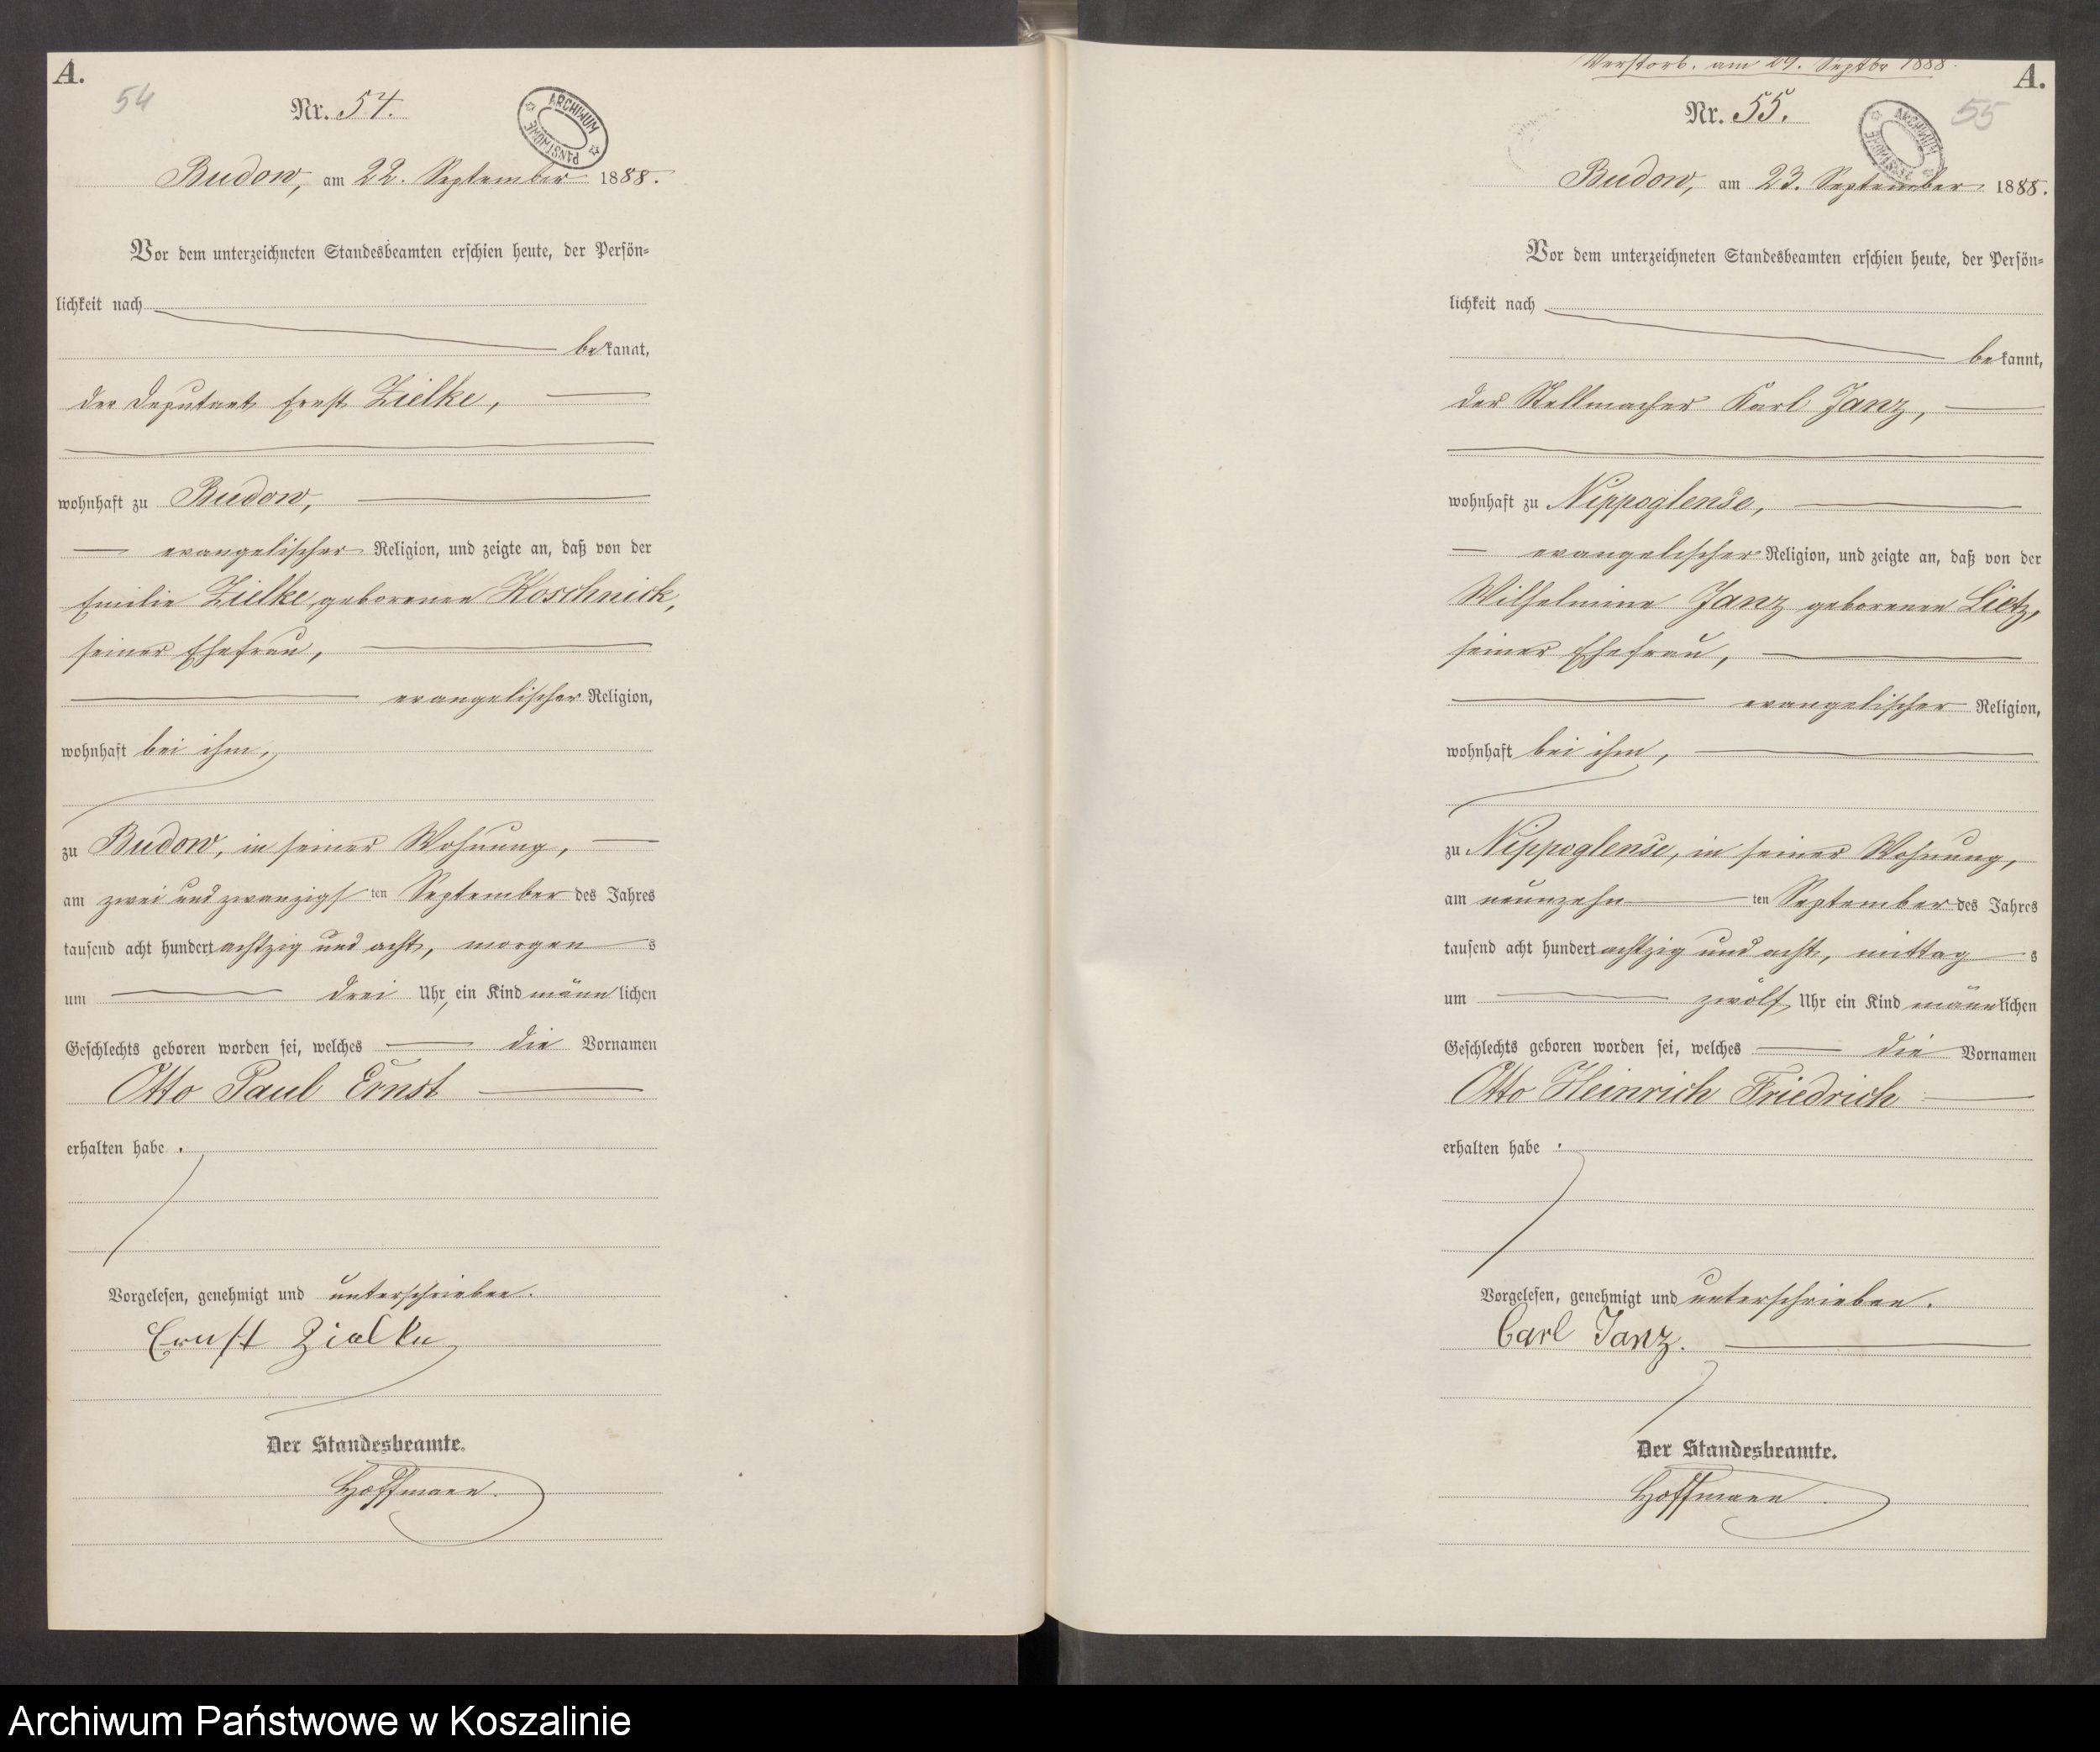 A.
54
Nr. 54.
ARCHIWUM PAŃSTWOWE
Budow, am 22. September 1888.
Vor dem unterzeichneten Standesbeamten erschien heute, der Persön-
lichkeit nach
bekannt,
der Deputant Ernst Zielke,
wohnhaft zu Budow,
evangelischer Religion, und zeigte an, daß von der
Emilie Zielke geborenen Koschnick,
seiner Ehefrau,
evangelischer Religion,
wohnhaft bei ihm,
zu Budow, in seiner Wohnung,
am zwei und zwanzigsten September des Jahres
tausend acht hundert achtzig und acht, morgens
um drei Uhr, ein Kind männlichen
Geschlechts geboren worden sei, welches die Vornamen
Otto Paul Ernst
erhalten habe.
Vorgelesen, genehmigt und unterschrieben.
Ernst Zielke
Der Standesbeamte.
Hoffmann.
Verstorb. am 29. Septbr 1888.
A.
Nr. 55.
55
ARCHIWUM PAŃSTWOWE
Budow, am 23. September 1888.
Vor dem unterzeichneten Standesbeamten erschien heute, der Persön-
lichkeit nach
bekannt,
der Stellmacher Karl Janz,
wohnhaft zu Nippoglense,
evangelischer Religion, und zeigte an, daß von der
Wilhelmine Janz geborenen Lietz,
seiner Ehefrau,
evangelischer Religion,
wohnhaft bei ihm,
zu Nippoglense, in seiner Wohnung,
am neunzehnten September des Jahres
tausend acht hundert achtzig und acht, mittags
um zwölf Uhr ein Kind männlichen
Geschlechts geboren worden sei, welches die Vornamen
Otto Heinrich Friedrich
erhalten habe.
Vorgelesen, genehmigt und unterschrieben.
Carl Janz.
Der Standesbeamte.
Hoffmann.
Archiwum Państwowe w Koszalinie